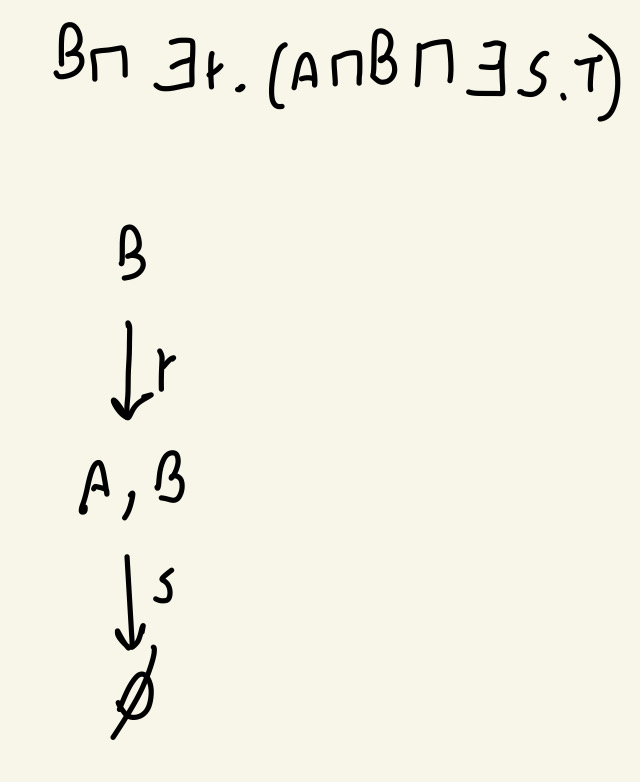 B⊓ ∃r. (A⊓B⊓∃S.T)
B
r
A, B
s
∅